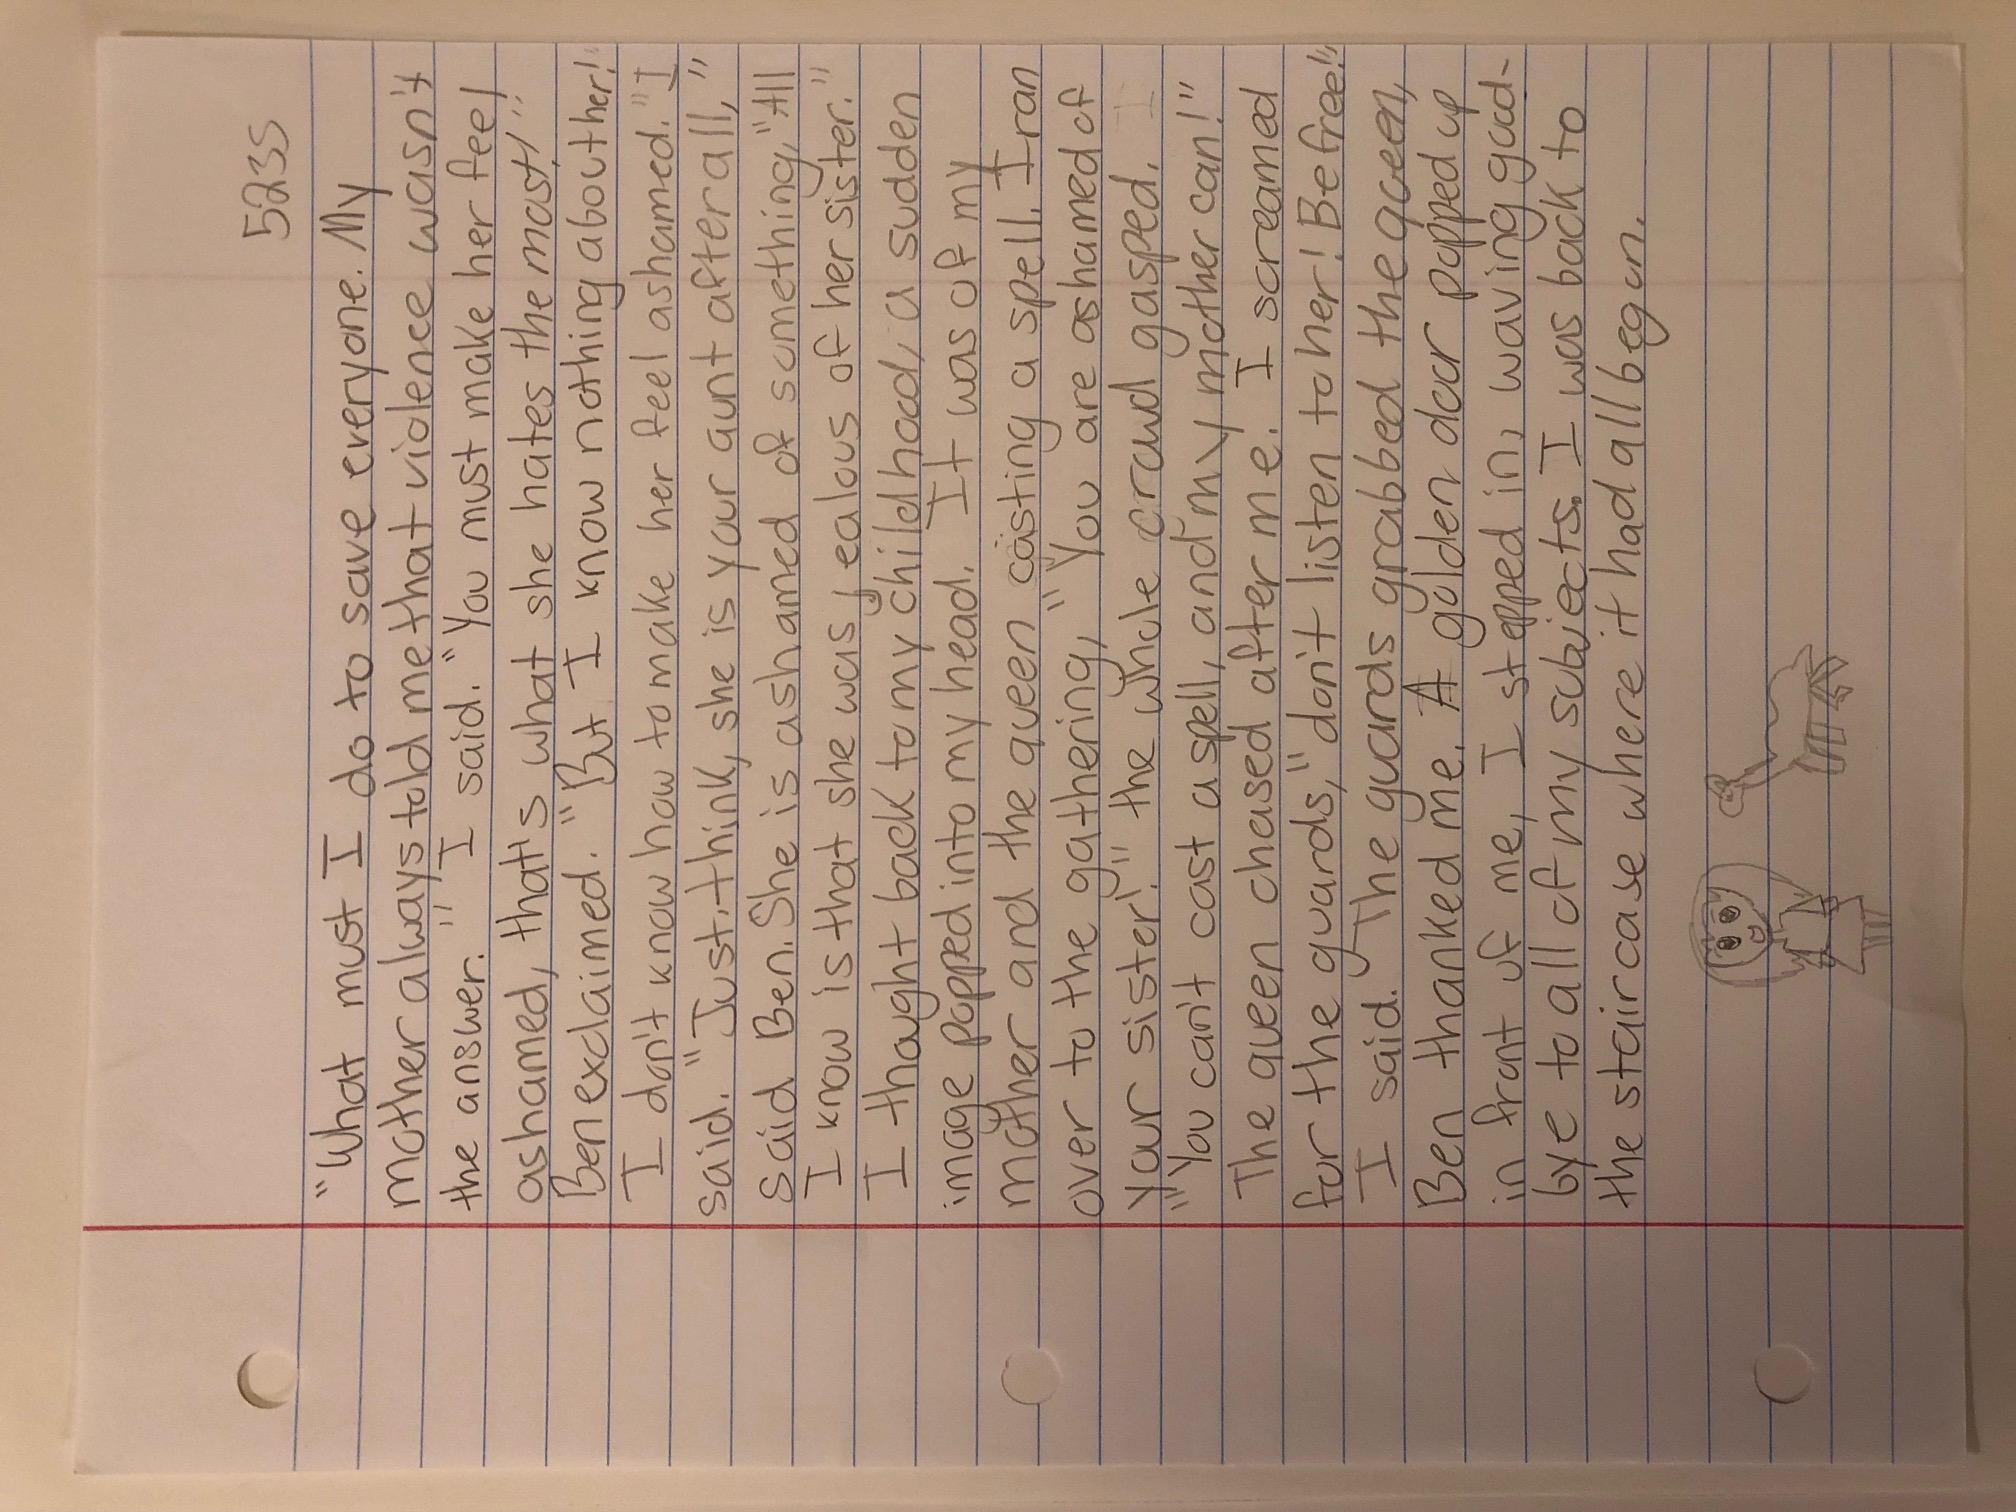 5235
"What must I do to save everyone. My
mother always told me that violence wasn't
the answer." I said. "You must make her feel
ashamed, that's what she hates the most!"
Ben exclaimed. "But I know nothing about her!
I don't know how to make her feel ashamed." I
said. "Just think, she is your aunt after all,"
said Ben. She is ashamed of something, "All
I know is that she was jealous of her sister."
I thought back to my childhood, a sudden
image popped into my head. It was of my
mother and the queen casting a spell. I ran
over to the gathering, "You are ashamed of
your sister!" the whole crowd gasped.
"You can't cast a spell, and my mother can!"
The queen chased after me. I screamed
for the guards, "don't listen to her! Be free!"
I said. The guards grabbed the queen,
Ben thanked me. A golden door popped up
in front of me, I stepped in, waving good-
bye to all of my subjects. I was back to
the staircase where it had all begun.